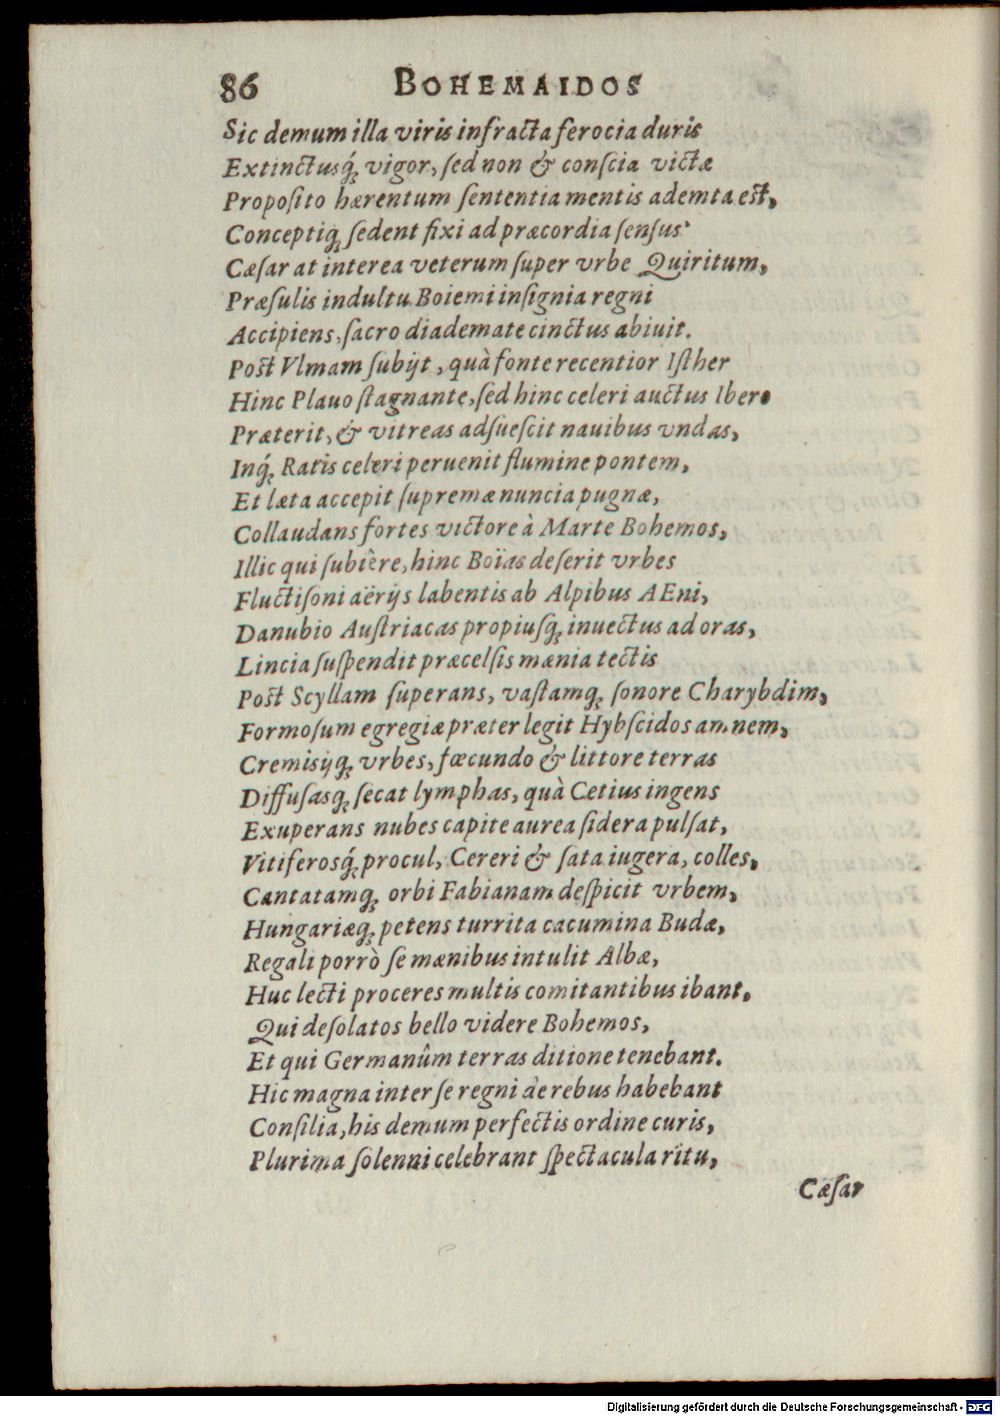 86 BOHEMAIDOS
Sic demum illa viris infracta ferocia duris
Extinctusq́; vigor, ſed non & conſcia victæ
Propoſito hærentum ſententia mentis ademta est,
Conceptiq; ſedent fixi ad præcordia ſenſus
Cæſar at interea veterum ſuper vrbe Quiritum,
Præſulis indultu Boiemi inſignia regni
Accipiens, ſacro diademate cinctus abiuit.
Post Vlmam ſubijt, quà fonte recentior Iſther
Hinc Plauo ſtagnante, ſed hinc celeri auctus Ibero
Præterit, & vitreas adſueſcit nauibus vndas,
Inq́; Ratis celeri peruenit flumine pontem,
Et læta accepit ſupremæ nuncia pugnæ,
Collaudans fortes victore à Marte Bohemos,
Illic qui ſubiêre, hinc Boïas deſerit vrbes
Fluctiſoni aërijs labentis ab Alpibus AEni,
Danubio Auſtriacas propiuſq; inuectus ad oras,
Lincia ſuſpendit præcelſis mænia tectis
Post Scyllam ſuperans, vaſtamq; ſonore Charybdim,
Formoſum egregiæ præter legit Hybſcidos amnem,
Cremisijq; vrbes, fœcundo & littore terras
Diffuſasq; ſecat lymphas, quà Cetius ingens
Exuperans nubes capite aurea ſidera pulſat,
Vitiferosq́; procul, Cereri & ſata iugera, colles,
Cantatamq; orbi Fabianam deſpicit vrbem,
Hungariæq; petens turrita cacumina Budæ,
Regali porrò ſe mænibus intulit Albæ,
Huc lecti proceres multis comitantibus ibant.
Qui deſolatos bello videre Bohemos,
Et qui Germanûm terras ditione tenebant.
Hic magna inter ſe regni de rebus habebant
Conſilia, his demum perfectis ordine curis,
Plurima ſolenni celebrant ſpectacula ritu,
Cæſar
Digitalisierung gefördert durch die Deutsche Forschungsgemeinschaft - DFG